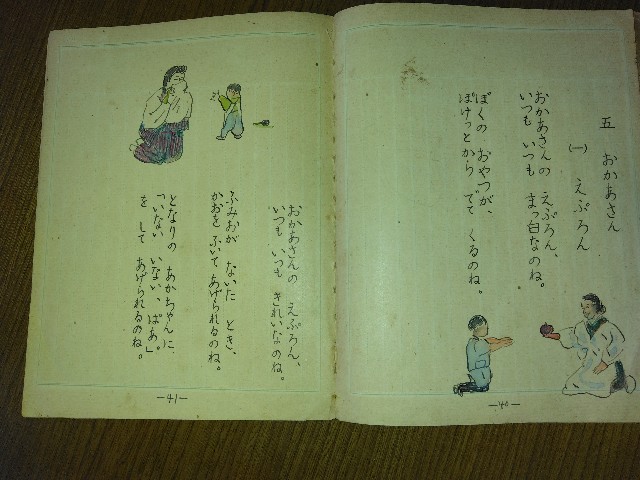 五 おかあさん
(一) えぷろん
おかあさんの えぷろん、
いつも いつも まっ白なのね。
ぼくの おやつが、
ぽけっとから でて くるのね。
—40—
おかあさんの えぷろん、
いつも いつも きれいなのね。
ふみおが ないた とき、
かおを ふいて あげられるのね。
となりの あかちゃんに、
「いない いない、ばあ。」
を して あげられるのね。
—41—